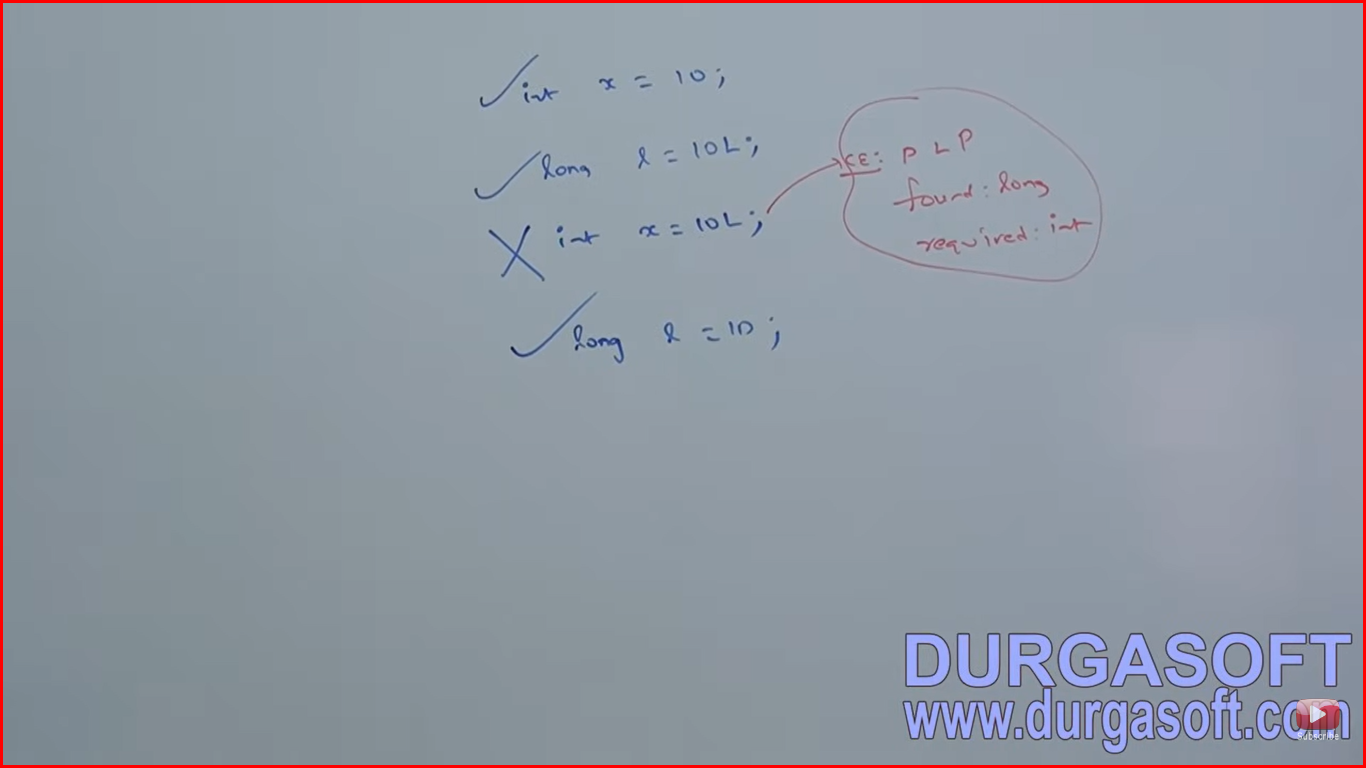 int x = 10;
long l = 10L;
int x = 10L;
long l = 10;
CE: P L P
found: long
required: int
DURGASOFT
www.durgasoft.com
Subscribe